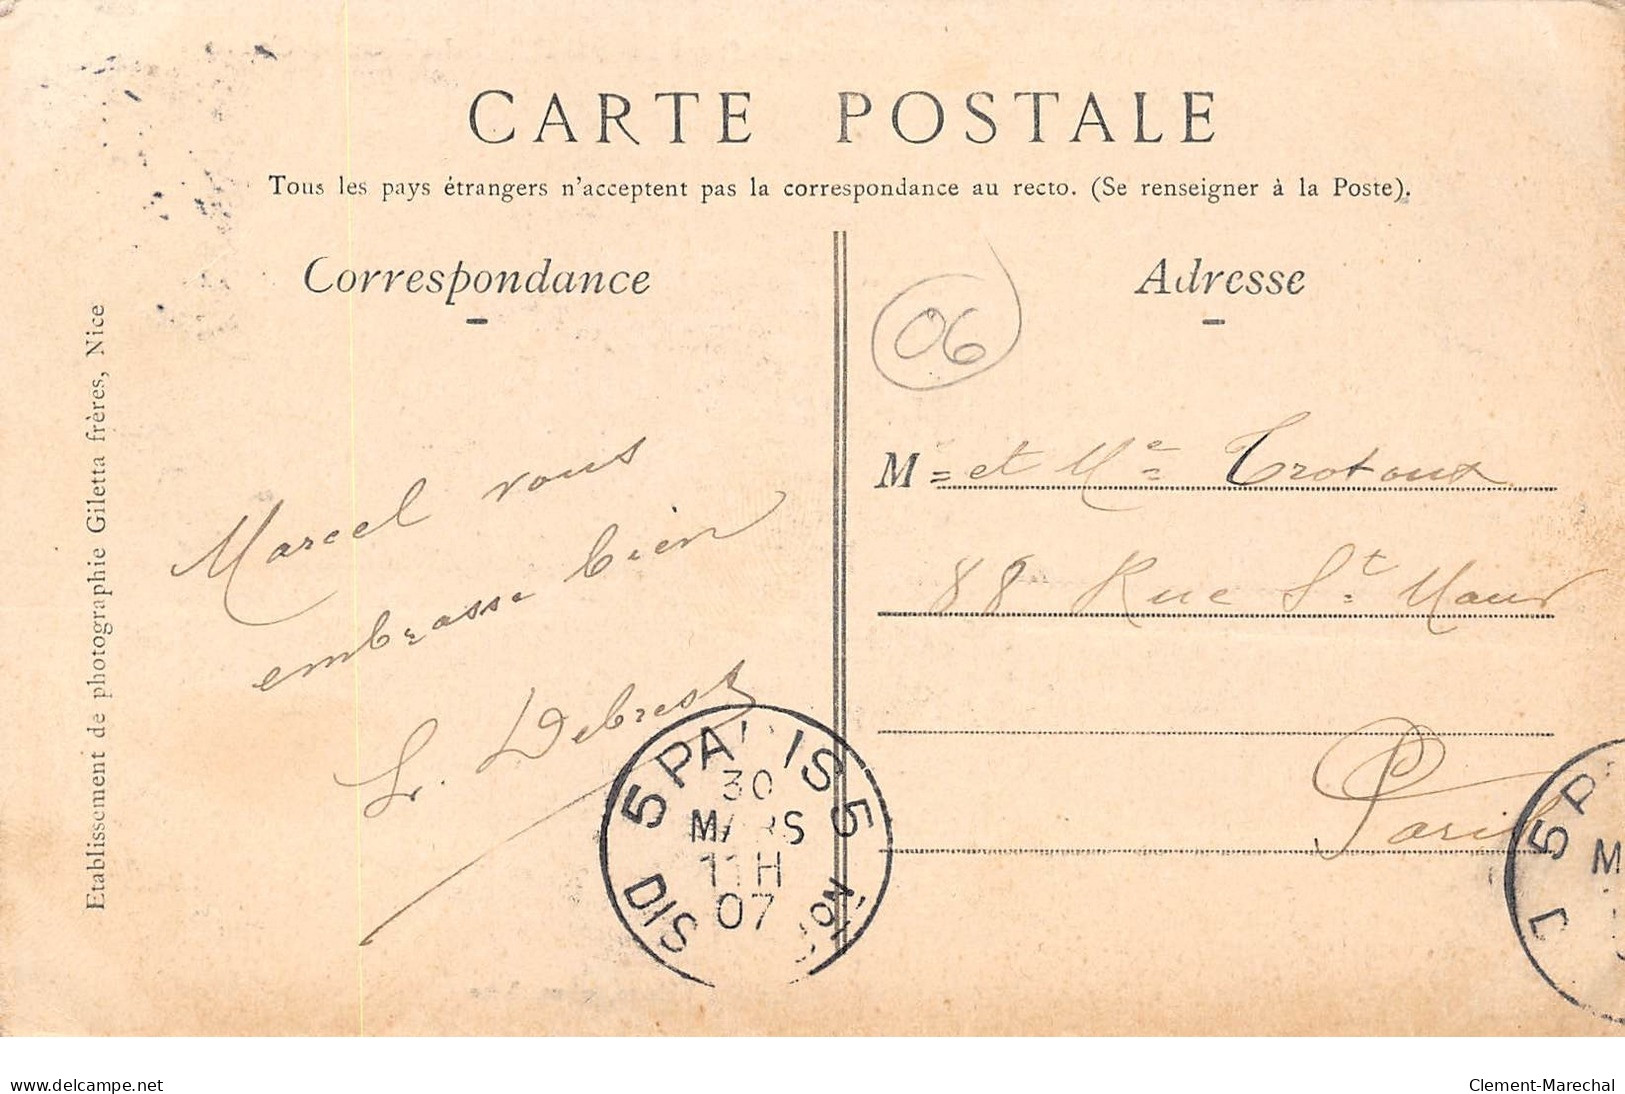 CARTE POSTALE
Tous les pays étrangers n'acceptent pas la correspondance au recto. (Se renseigner à la Poste).
Correspondance
Adresse
06
Etablissement de photographie Giletta frères, Nice
Marcel vous
embrasse bien
M = et Me = Trotoux
88 Rue St. Maur
Paris
5 PARIS 5
30
MARS
11H
07
DIS
5 P
M
www.delcampe.net
Clement-Marechal